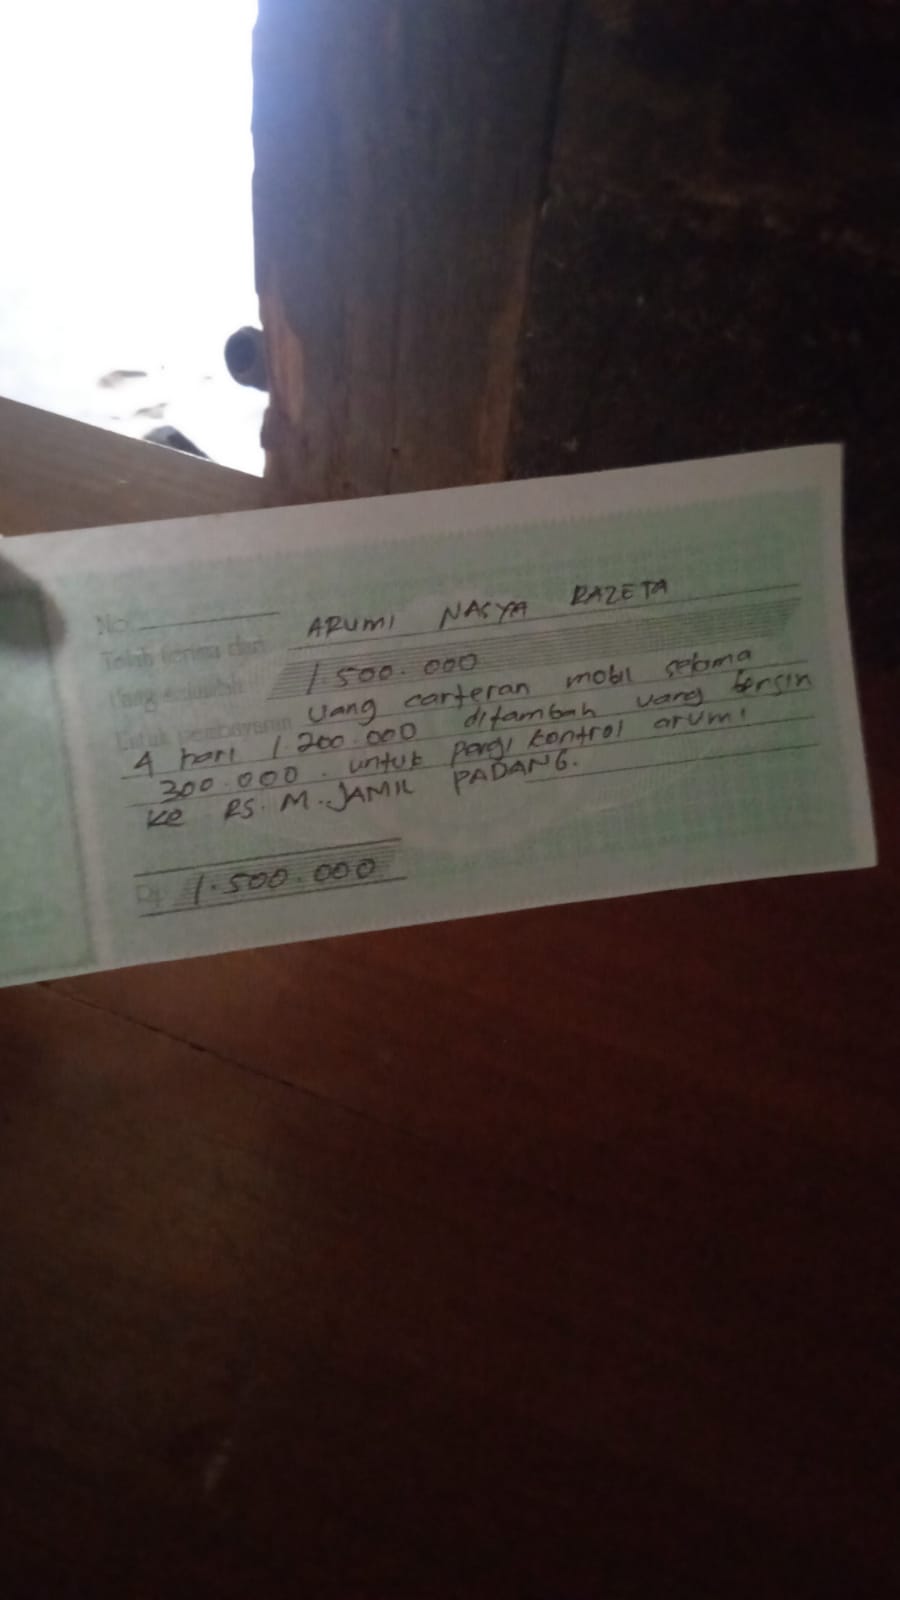 No.
Telah terima dari ARUMI NASYA RAZETA
Uang sejumlah 1.500.000
Untuk pembayaran uang carteran mobil selama
4 hari 1.200.000 ditambah uang bensin
300.000. untuk pergi kontrol arumi
ke RS. M. JAMIL PADANG.
Rp. 1.500.000